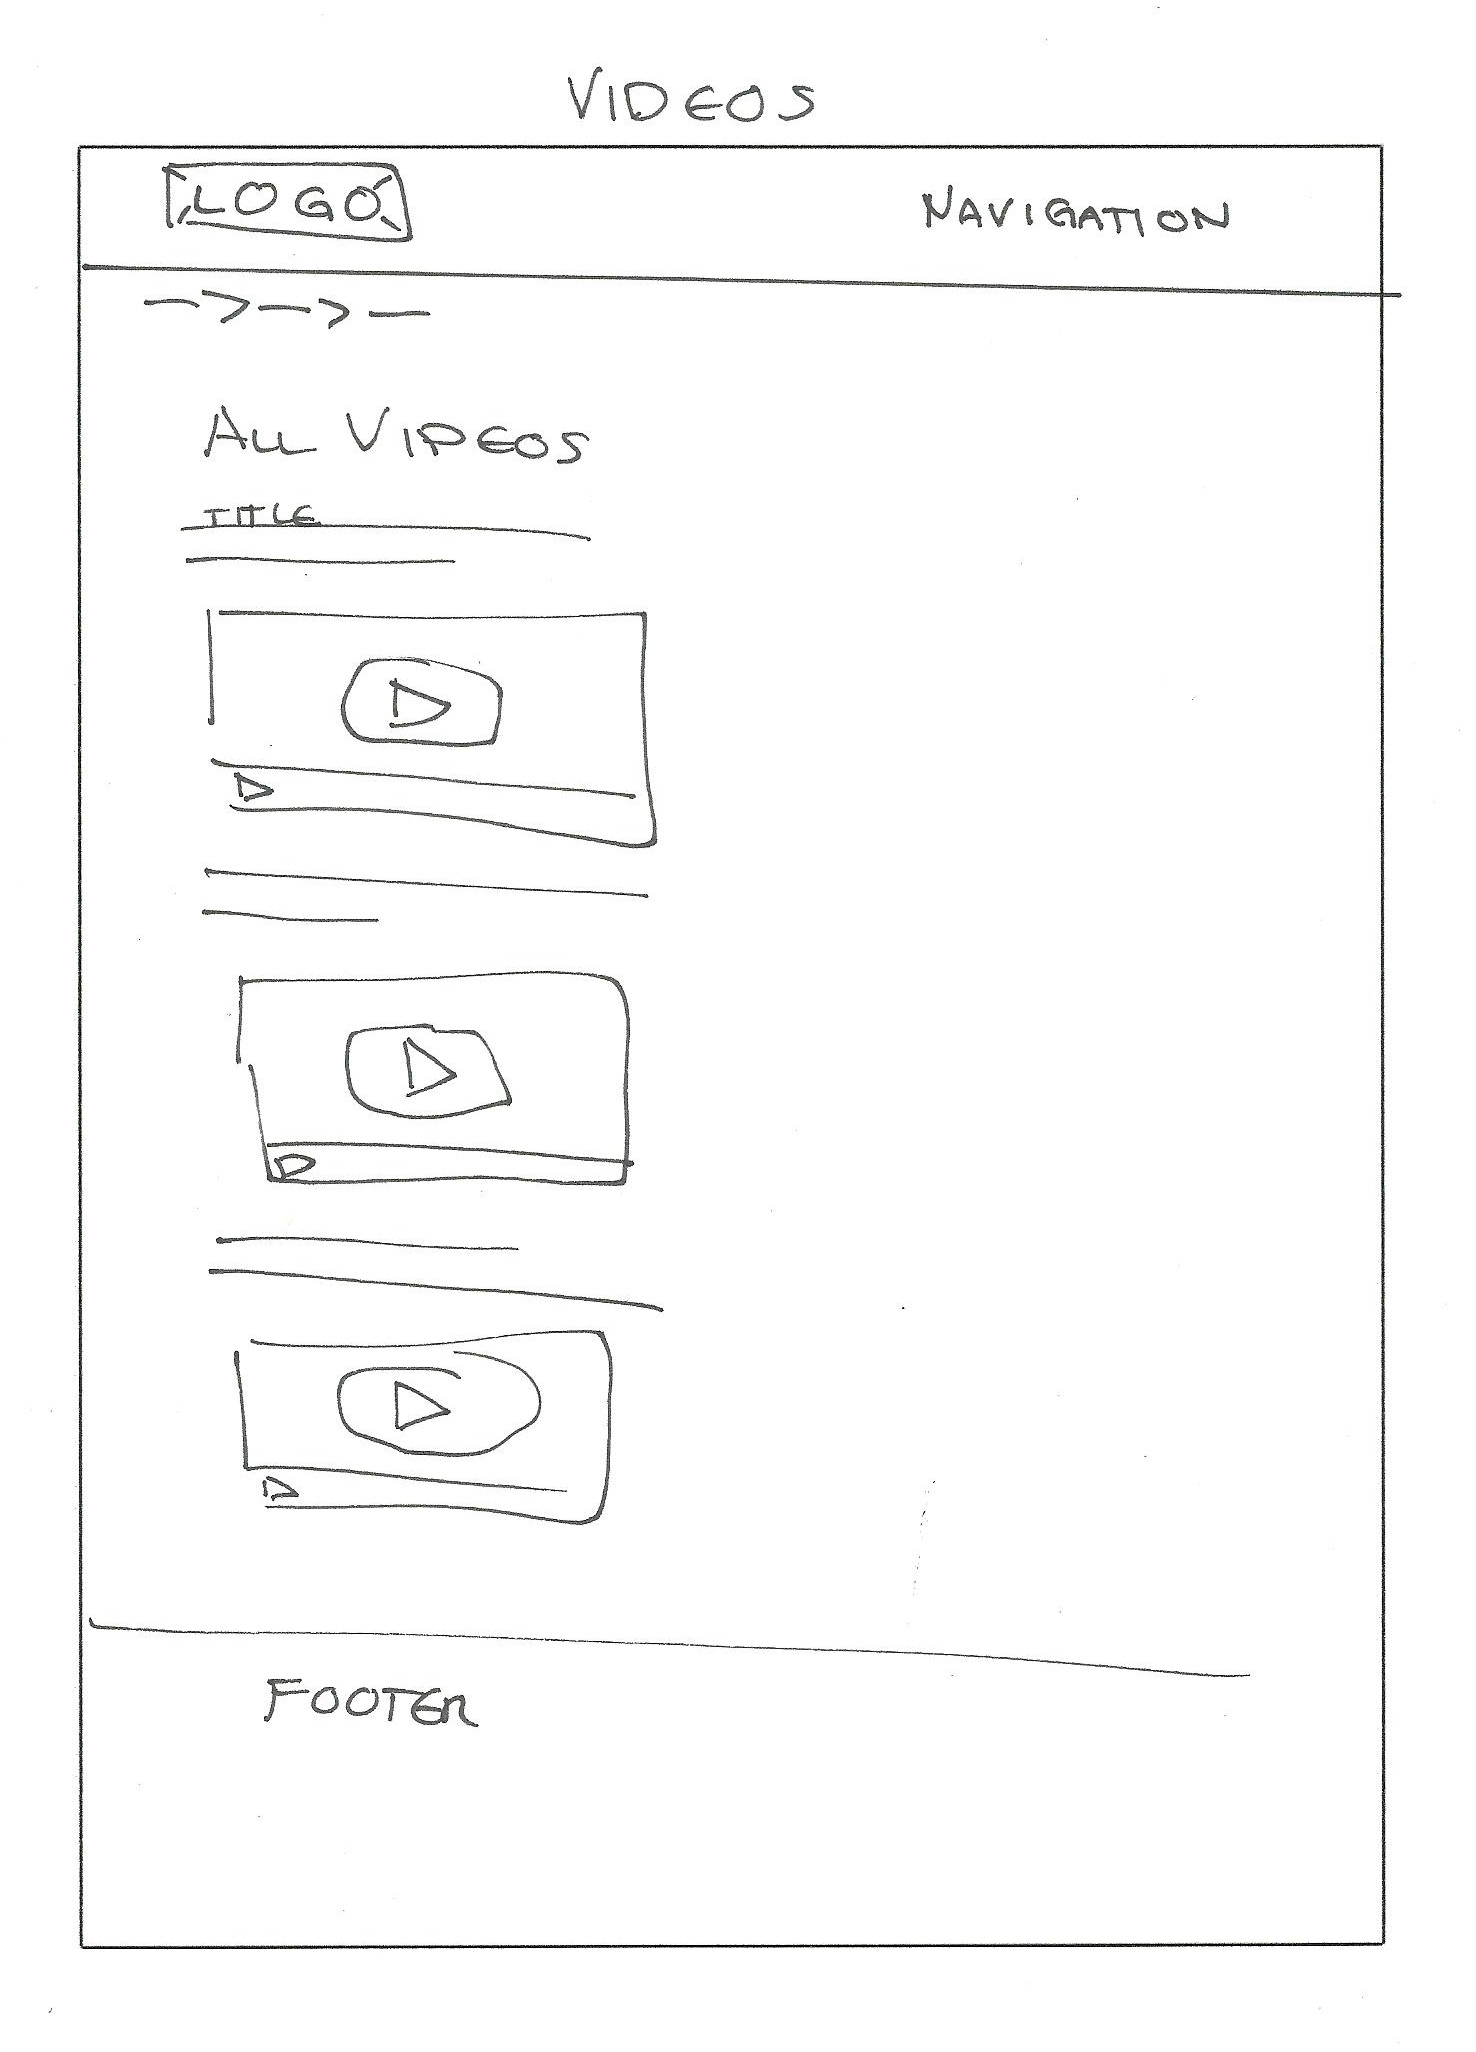 VIDEOS
LOGO
NAVIGATION
ALL VIDEOS
TITLE
FOOTER